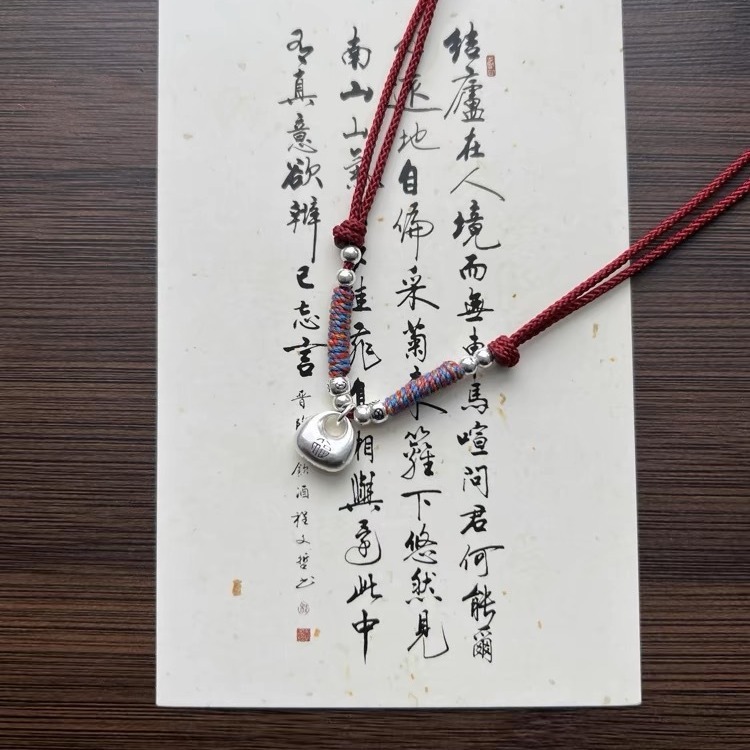 结廬在人境而無車馬喧問君何能爾
遠地自偏采菊東籬下悠然見
南山山氣佳飛鳥相與還此中
有真意欲辨已忘言
晋陶飲酒程文哲书
福